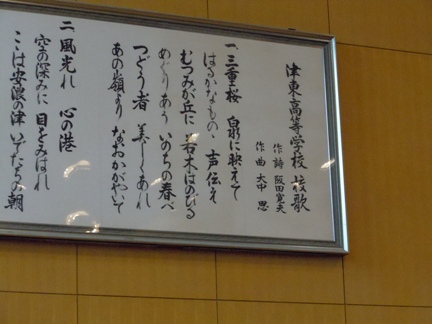 津東高等学校 校歌
作詩 阪田寛夫
作曲 大中 恩
一、三重桜 泉に映えて
はるかなもの 声伝え
むつみが丘に 若木はのびる
めぐりあう いのちの春べ
つどう者 美しくあれ
あの嶺より なおかがやいて
二、風光れ 心の港
空の深みに 目をみはれ
ここは安濃の津 いでたちの朝